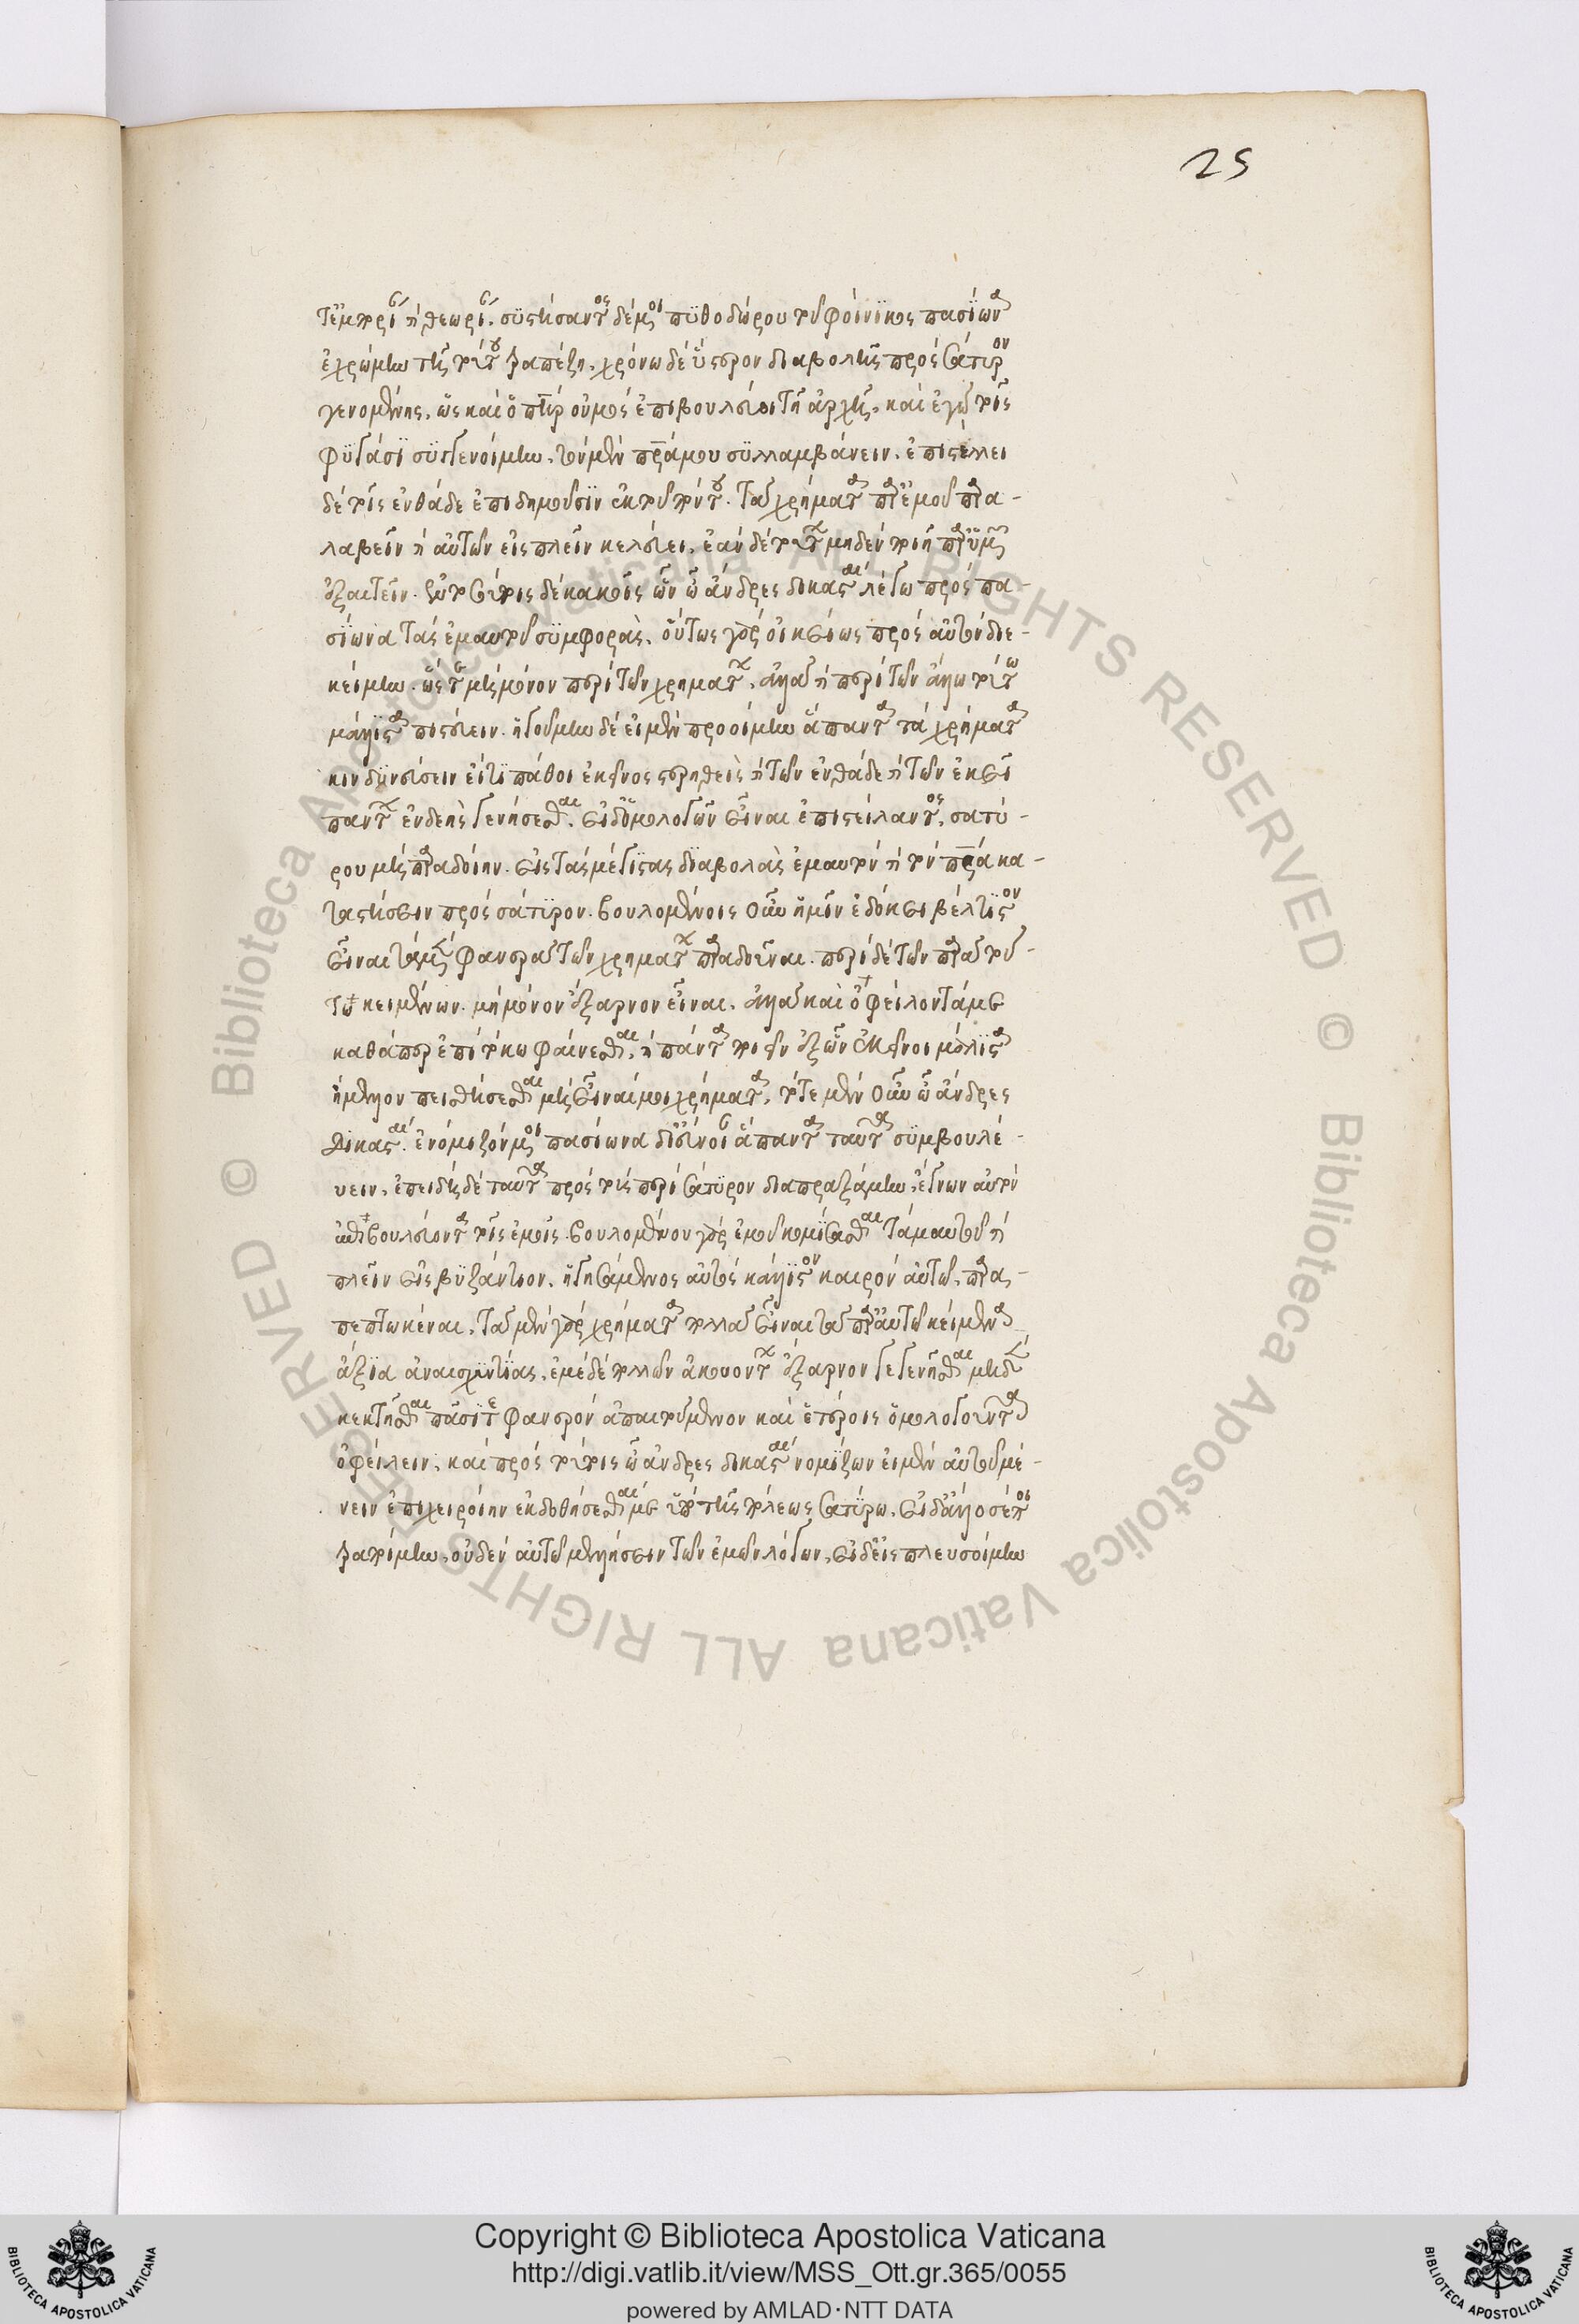 τ' ἐμπορίαν καὶ θεωρίαν. συστήσαντος δέ μοι πυθοδώρου τοῦ φοίνικος πασίωνα
ἐχρώμην τῆ τούτου τραπέζη. χρόνω δὲ ὕστερον διαβολῆς πρὸς σάτυρον
γενομένης, ὡς καὶ ὁ πατὴρ οὑμὸς ἐπιβουλεύοι τῆ ἀρχῆ, καὶ ἐγὼ τοῖς
φυγάσι συγγενοίμην, τὸν μὲν πατέρα μου συλλαμβάνειν. ἐπιστέλλει
δὲ τοῖς ἐνθάδε ἐπιδημοῦσιν ἐκ τοῦ πόντου. τὰ χρήματα παρ' ἐμοῦ παρα-
λαβεῖν καὶ αὐτὸν εἰσπλεῖν κελεύει. ἐὰν δὲ τούτων μηδὲν ποιῆ παρ' ὑμῶν
ἐξαιτεῖν. ἐν τοσούτοις δὲ κακοῖς ὢν ὦ ἄνδρες δικασταὶ λέγω πρὸς πα-
σίωνα τὰς ἐμαυτοῦ συμφορὰς. οὕτως γὰρ οἰκείως πρὸς αὐτὸν διε-
κείμην. ὥστε μὴ μόνον περὶ τῶν χρημάτων, ἀλλὰ καὶ περὶ τῶν ἄλλων τούτω
μάλιστα πιστεύειν. ἡγούμην δὲ εἰ μὲν προοίμην ἅπαντα τὰ χρήματα
κινδυνεύσειν εἴ τι πάθοι ἐκεῖνος στερηθεὶς καὶ τῶν ἐνθάδε καὶ τῶν ἐκεῖ
πάντων ἐνδεὴς γενήσεσθαι. εἰ δ' ὁμολογῶν εἶναι ἐπιστείλαντος, σατύ-
ρου μὴ παραδοίην. εἰς τὰς μεγίστας διαβολὰς ἐμαυτὸν καὶ τὸν πατέρα κα-
ταστήσειν πρὸς σάτυρον. βουλομένοις οὖν ἡμῖν ἐδόκει βέλτιστον
εἶναι τὰ μὲν φανερὰ τῶν χρημάτων παραδοῦναι. περὶ δὲ τῶν παρὰ τού-
τω κειμένων. μὴ μόνον ἔξαρνον εἶναι. ἀλλὰ καὶ ὀφείλοντά με
καθάπερ ἐπὶ τόκω φαίνεσθαι, καὶ πάντα ποιεῖν ἐξ ὧν ἐκεῖνοι μάλιστα
ἤμελλον πεισθήσεσθαι μὴ εἶναί μοι χρήματα. τότε μὲν οὖν ὦ ἄνδρες
δικασταί. ἐνόμιζόν μοι πασίωνα δι' εὔνοιαν ἅπαντα ταῦτα συμβουλέ-
υειν. ἐπειδὴ δὲ ταῦτα πρὸς τοὺς περὶ σάτυρον διαπραξάμην, ἔγνων αὐτὸν
ἐπιβουλεύοντα τοῖς ἐμοῖς. βουλομένου γὰρ ἐμοῦ κομίσασθαι τἀμαυτοῦ καὶ
πλεῖν εἰς βυζάντιον. ἡγησάμενος αὐτὸς κάλλιστον καιρὸν αὐτῶ, παρα-
πεπτωκέναι. τὰ μὲν γὰρ χρήματα πολλὰ εἶναι τὰ παρ' αὐτῶ κείμενα
ἄξια ἀναισχυντίας. ἐμὲ δὲ πολλῶν ἀκουόντων ἔξαρνον γεγενῆσθαι μηδὲν
κεκτῆσθαι πᾶσί τε φανερὸν ἀπαιτούμενον καὶ ἑτέροις ὁμολογοῦντα
ὀφείλειν. καὶ πρὸς τούτοις ὦ ἄνδρες δικασταὶ νομίζων εἰ μὲν αὐτοῦ μέ-
νειν ἐπιχειροίην ἐκδοθήσεσθαί με ὑπὸ τῆς πόλεως σατύρω. εἰ δ' ἄλλοσέ ποι
τραποίμην, οὐδὲν αὐτῶ μελήσειν τῶν ἐμῶν λόγων, εἰ δ' εἰσπλευσοίμην
25
Copyright © Biblioteca Apostolica Vaticana
http://digi.vatlib.it/view/MSS_Ott.gr.365/0055
powered by AMLAD·NTT DATA